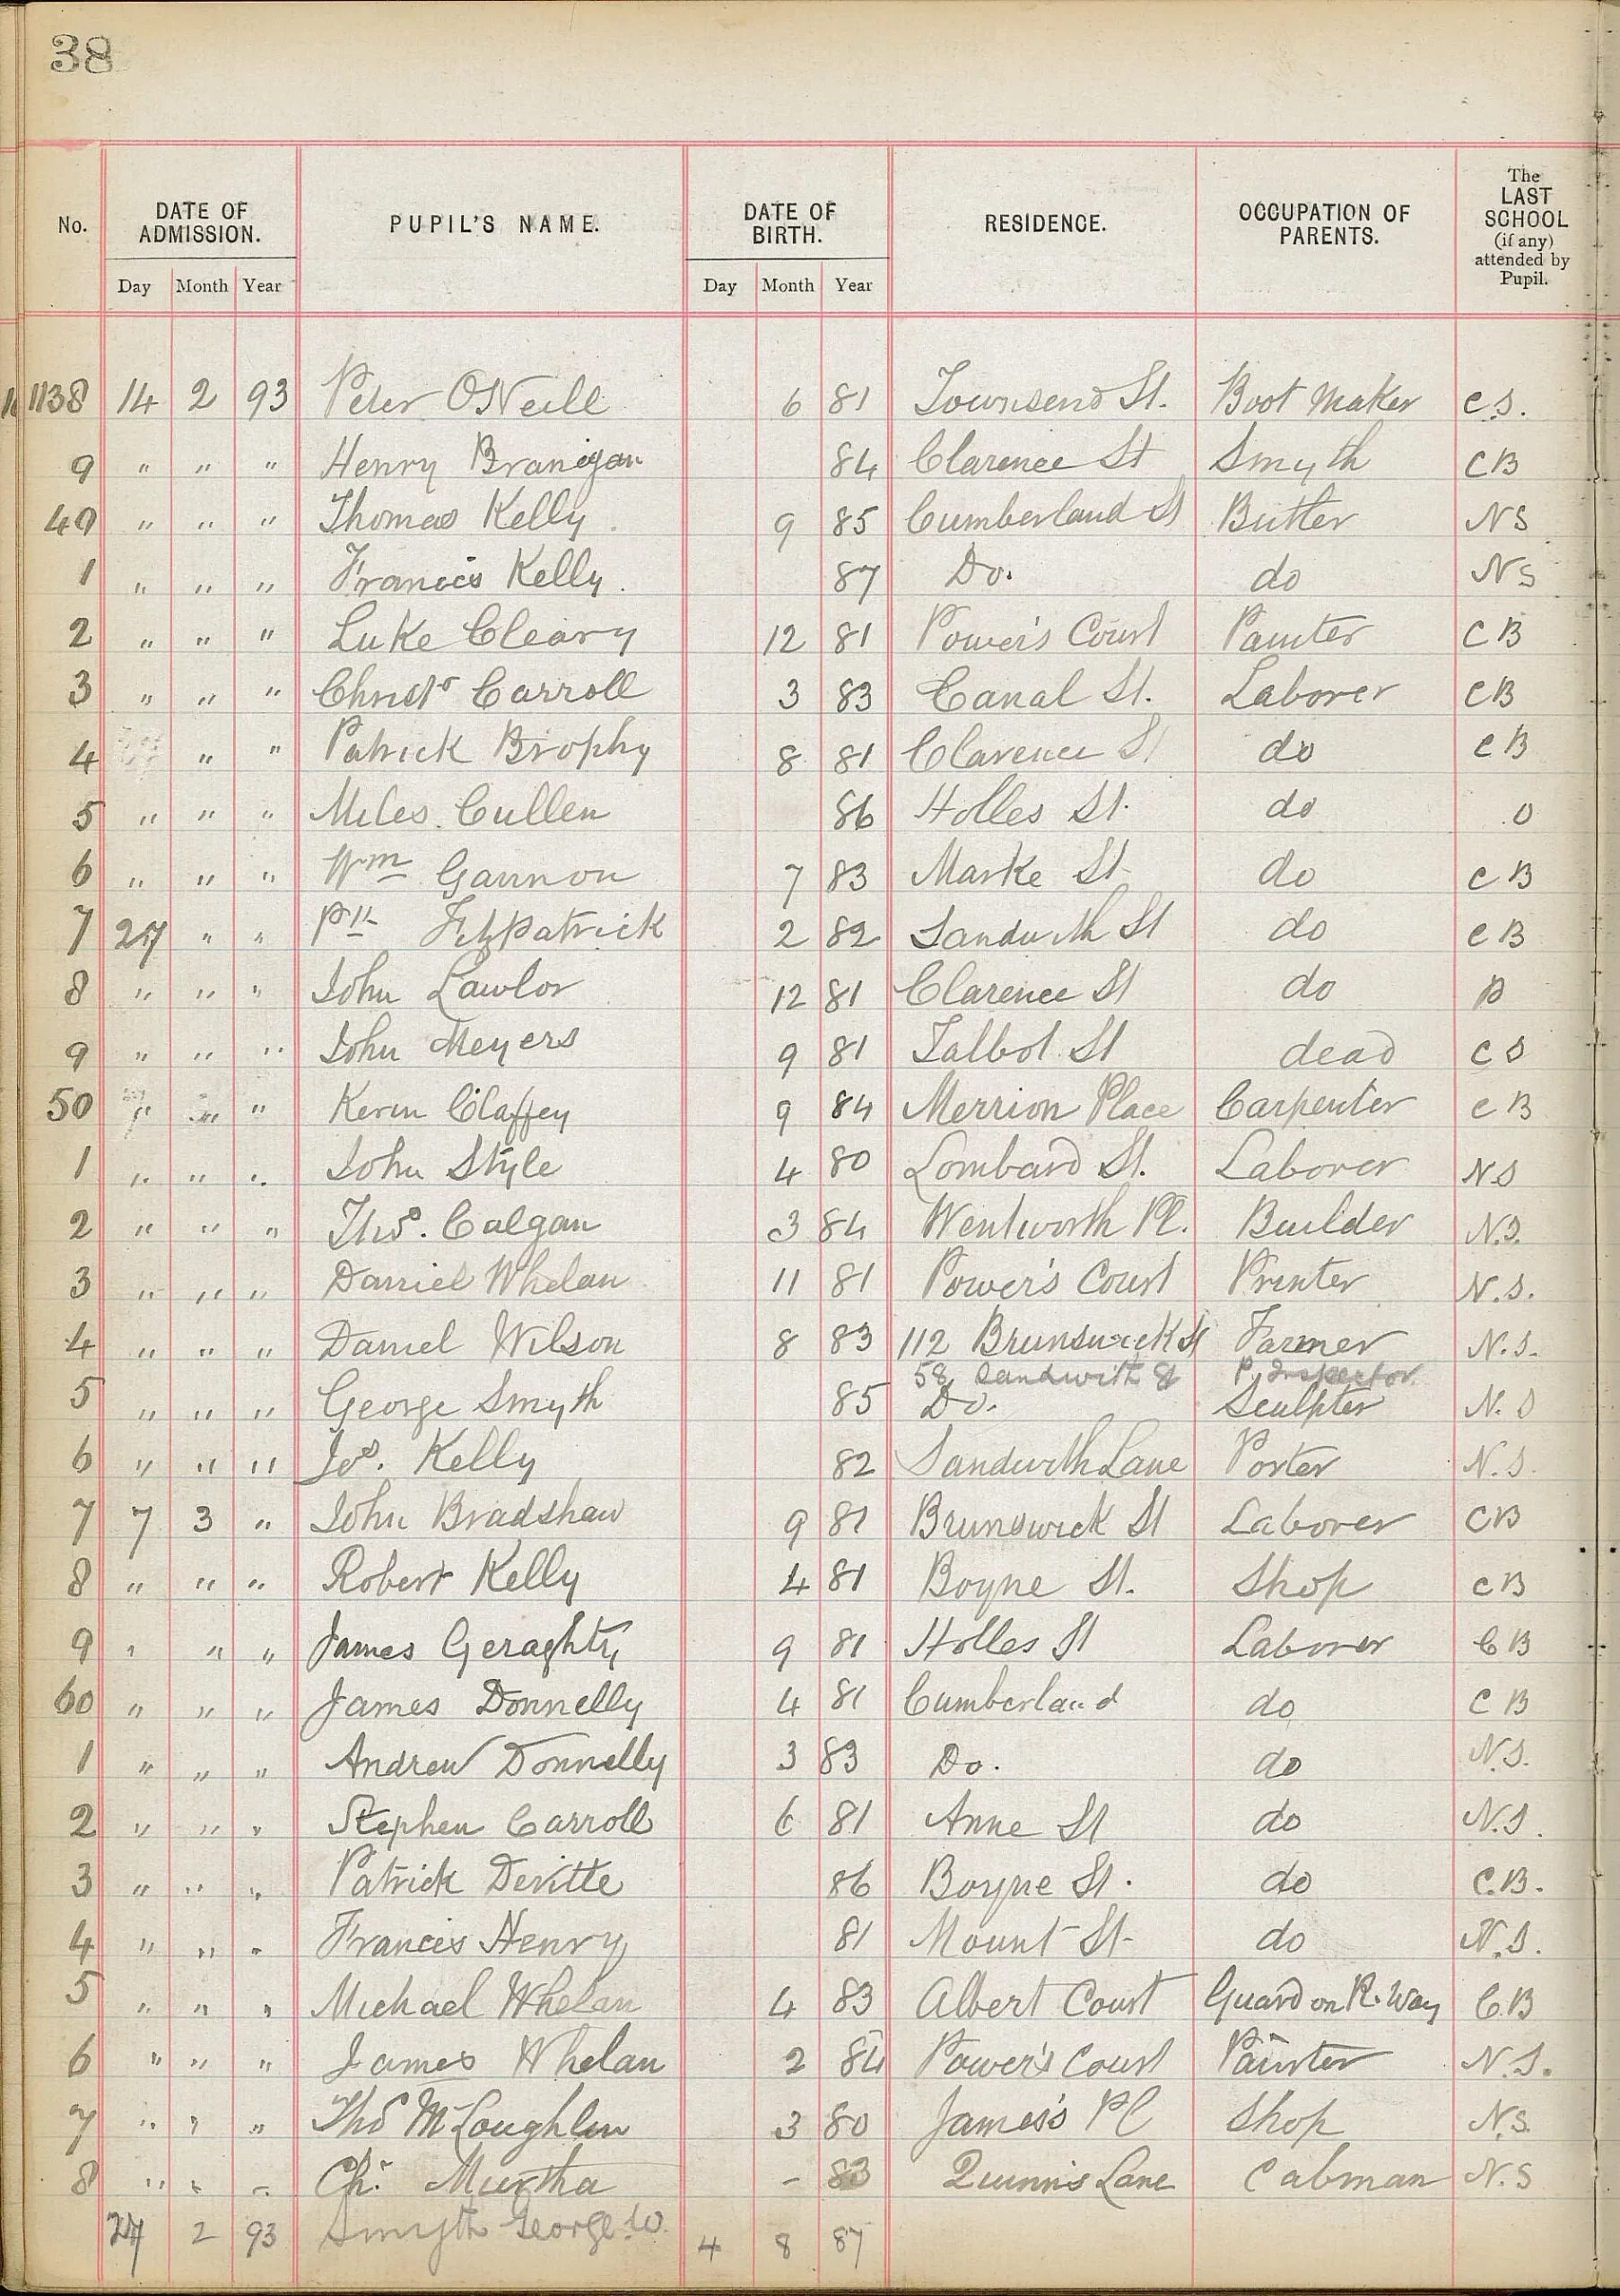 38
No. DATE OF ADMISSION. PUPIL'S NAME. DATE OF BIRTH. RESIDENCE. OCCUPATION OF PARENTS. The LAST SCHOOL (if any) attended by Pupil.
Day Month Year Day Month Year
1138 14 2 93 Peter O'Neill 6 81 Townsend St. Boot Maker C S.
9 " " " Henry Branigan 84 Clarence St Smyth C B
40 " " " Thomas Kelly 9 85 Cumberland St Butler N S
1 " " " Francis Kelly. 87 Do. do N S
2 " " " Luke Cleary 12 81 Power's Court Painter C B
3 " " " Christr Carroll 3 83 Canal St. Laborer C B
4 " " Patrick Brophy 8 81 Clarence St do C B
5 " " " Miles Cullen 86 Holles St. do O
6 " " " Wm Gannon 7 83 Marke St do C B
7 27 " " Ptk Fitzpatrick 2 82 Sandwith St do C B
8 " " " John Lawlor 12 81 Clarence St do P
9 " " " John Meyers 9 81 Talbot St dead C S
50 " " " Kevin Claffey 9 84 Merrion Place Carpenter C B
1 " " " John Style 4 80 Lombard St. Laborer N S
2 " " " Thos. Calgan 3 84 Wentworth Pl. Builder N.S.
3 " " " Daniel Whelan 11 81 Power's Court Printer N.S.
4 " " " Daniel Wilson 8 83 112 Brunswick St Farmer N.S.
58 Sandwith St P. Inspector
5 " " " George Smyth 85 Do. Sculpter N.S
6 " " " Jos. Kelly 82 Sandwith Lane Porter N.S.
7 7 3 " John Bradshaw 9 81 Brunswick St Laborer C B
8 " " " Robert Kelly 4 81 Boyne St. Shop C B
9 " " " James Geraghty 9 81 Holles St Laborer C B
60 " " " James Donnelly 4 81 Cumberland do C B
1 " " " Andrew Donnelly 3 83 Do. do N.S.
2 " " " Stephen Carroll 6 81 Anne St do N.S.
3 " " " Patrick Devitte 86 Boyne St. do C.B.
4 " " " Francis Henry 81 Mount St do N.S.
5 " " " Michael Whelan 4 83 Albert Court Guard on R. Way C.B
6 " " " James Whelan 2 84 Power's Court Painter N.S.
7 " " " Thos McLoughlin 3 80 James's Pl Shop N.S.
8 " " " Chr. Murtha - 83 Quinn's Lane Cabman N.S
27 2 93 Smyth George W. 4 8 87